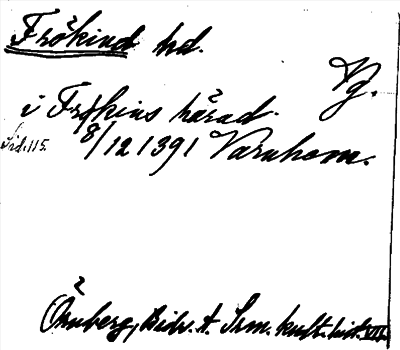 Frökind hd.
Vg.
i Frøkins hårad.
Sid. 115. 8/12 1391 Varnhom.
Örnberg, Bidr. t. Srm. kult. hist. VII.